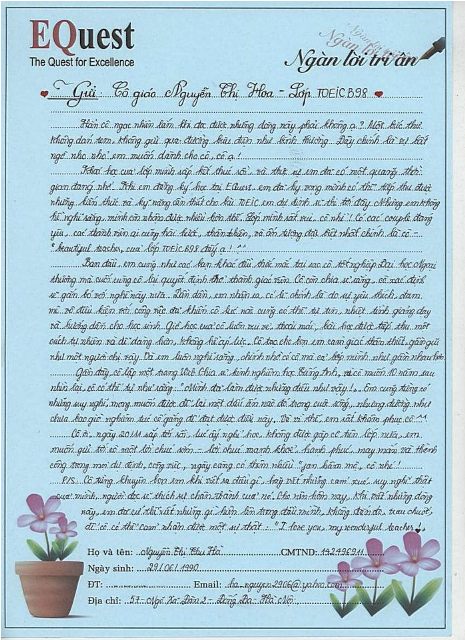 EQuest
The Quest for Excellence
Ngàn lời tri ân
Gửi: Cô giáo Nguyễn Thị Hoa - Lớp TOEIC B98
Hẳn cô ngạc nhiên lắm khi đọc được những dòng này phải không ạ? Một bức thư
không dán tem, không gửi qua đường bưu điện như bình thường. Đây chính là sự bất
ngờ nho nhỏ em muốn dành cho cô, cô ạ!
Khoá học của lớp mình sắp kết thúc rồi, và thật sự em đã có một quãng thời
gian đáng nhớ. Khi em đăng ký học tại EQuest, em đã kỳ vọng mình có thể tiếp thu được
những kiến thức và kỹ năng cần thiết cho bài TOEIC em dự định sẽ thi tới đây. Nhưng em không
hề nghĩ rằng, mình còn nhận được nhiều hơn thế. Lớp mình rất vui, cô nhỉ! Có các couple đáng
yêu, các thành viên ai cũng hài hước, thân thiện, và ấn tượng đặc biệt nhất chính là cô -
"beautiful teacher" của lớp TOEIC B98 đấy ạ! ^^
Ban đầu, em cũng như các bạn khác đều thắc mắc tại sao cô tốt nghiệp Đại học Ngoại
thương mà cuối cùng cô lại quyết định trở thành giáo viên. Cô còn chia sẻ rằng, cô xác định
sẽ gắn bó với nghề này nữa. Dần dần, em nhận ra, có lẽ chính là do sự yêu thích, đam
mê và điều kiện với công việc đã khiến cô lúc nào cũng có thể tự tin, nhiệt tình giảng dạy
và hướng dẫn cho học sinh. Giờ học của cô luôn vui vẻ, thoải mái, bài học được tiếp thu một
cách tự nhiên và dễ dàng hơn, không hề áp lực. Cô tạo cho bọn em cảm giác thân thiết, gần gũi
như một người chị vậy. Và em luôn nghĩ rằng, chính nhờ có cô mà cả lớp mình như gắn bó
Gần đây cô lập một trang Web chia sẻ kinh nghiệm học tiếng Anh, và cô muốn 10 năm sau
nhìn lại, cô có thể tự nhủ rằng: "Mình đã làm được những điều như vậy!". Em cũng từng có
những suy nghĩ, mong muốn được để lại một dấu ấn nào đó trong cuộc sống, nhưng dường như
chưa bao giờ nghiêm túc cố gắng để đạt được điều này. Vì vậy thế, em rất khâm phục cô ^^
Cô ơi, ngày 20/11 sắp tới rồi, lúc ấy nghỉ học, không được gặp cô trên lớp nữa, em
muốn gửi tới cô một lời chúc sớm - lời chúc mạnh khoẻ, hạnh phúc, may mắn và thành
công trong mọi dự định, công việc, ngày càng có thêm nhiều "fan hâm mộ", cô nhé!
P/S: Cô từng khuyên bọn em khi viết ra điều gì, hãy viết những cảm xúc, suy nghĩ thật
của mình, người đọc sẽ thích sự chân thành của nó. Cho nên hôm nay, khi viết những dòng
này, em đã viết những gì hiện hữu trong đầu mình, không đắn đo, trau chuốt,
để cô có thể cảm nhận được một sự thật: "I love you, my wonderful teacher"
Họ và tên: Nguyễn Thị Thu Hà CMTND: 142496911
Ngày sinh: 29/06/1990
ĐT: Email: ha_nguyen2906@yahoo.com
Địa chỉ: 57 - Ngõ Xã Đàn 2 - Đống Đa - Hà Nội